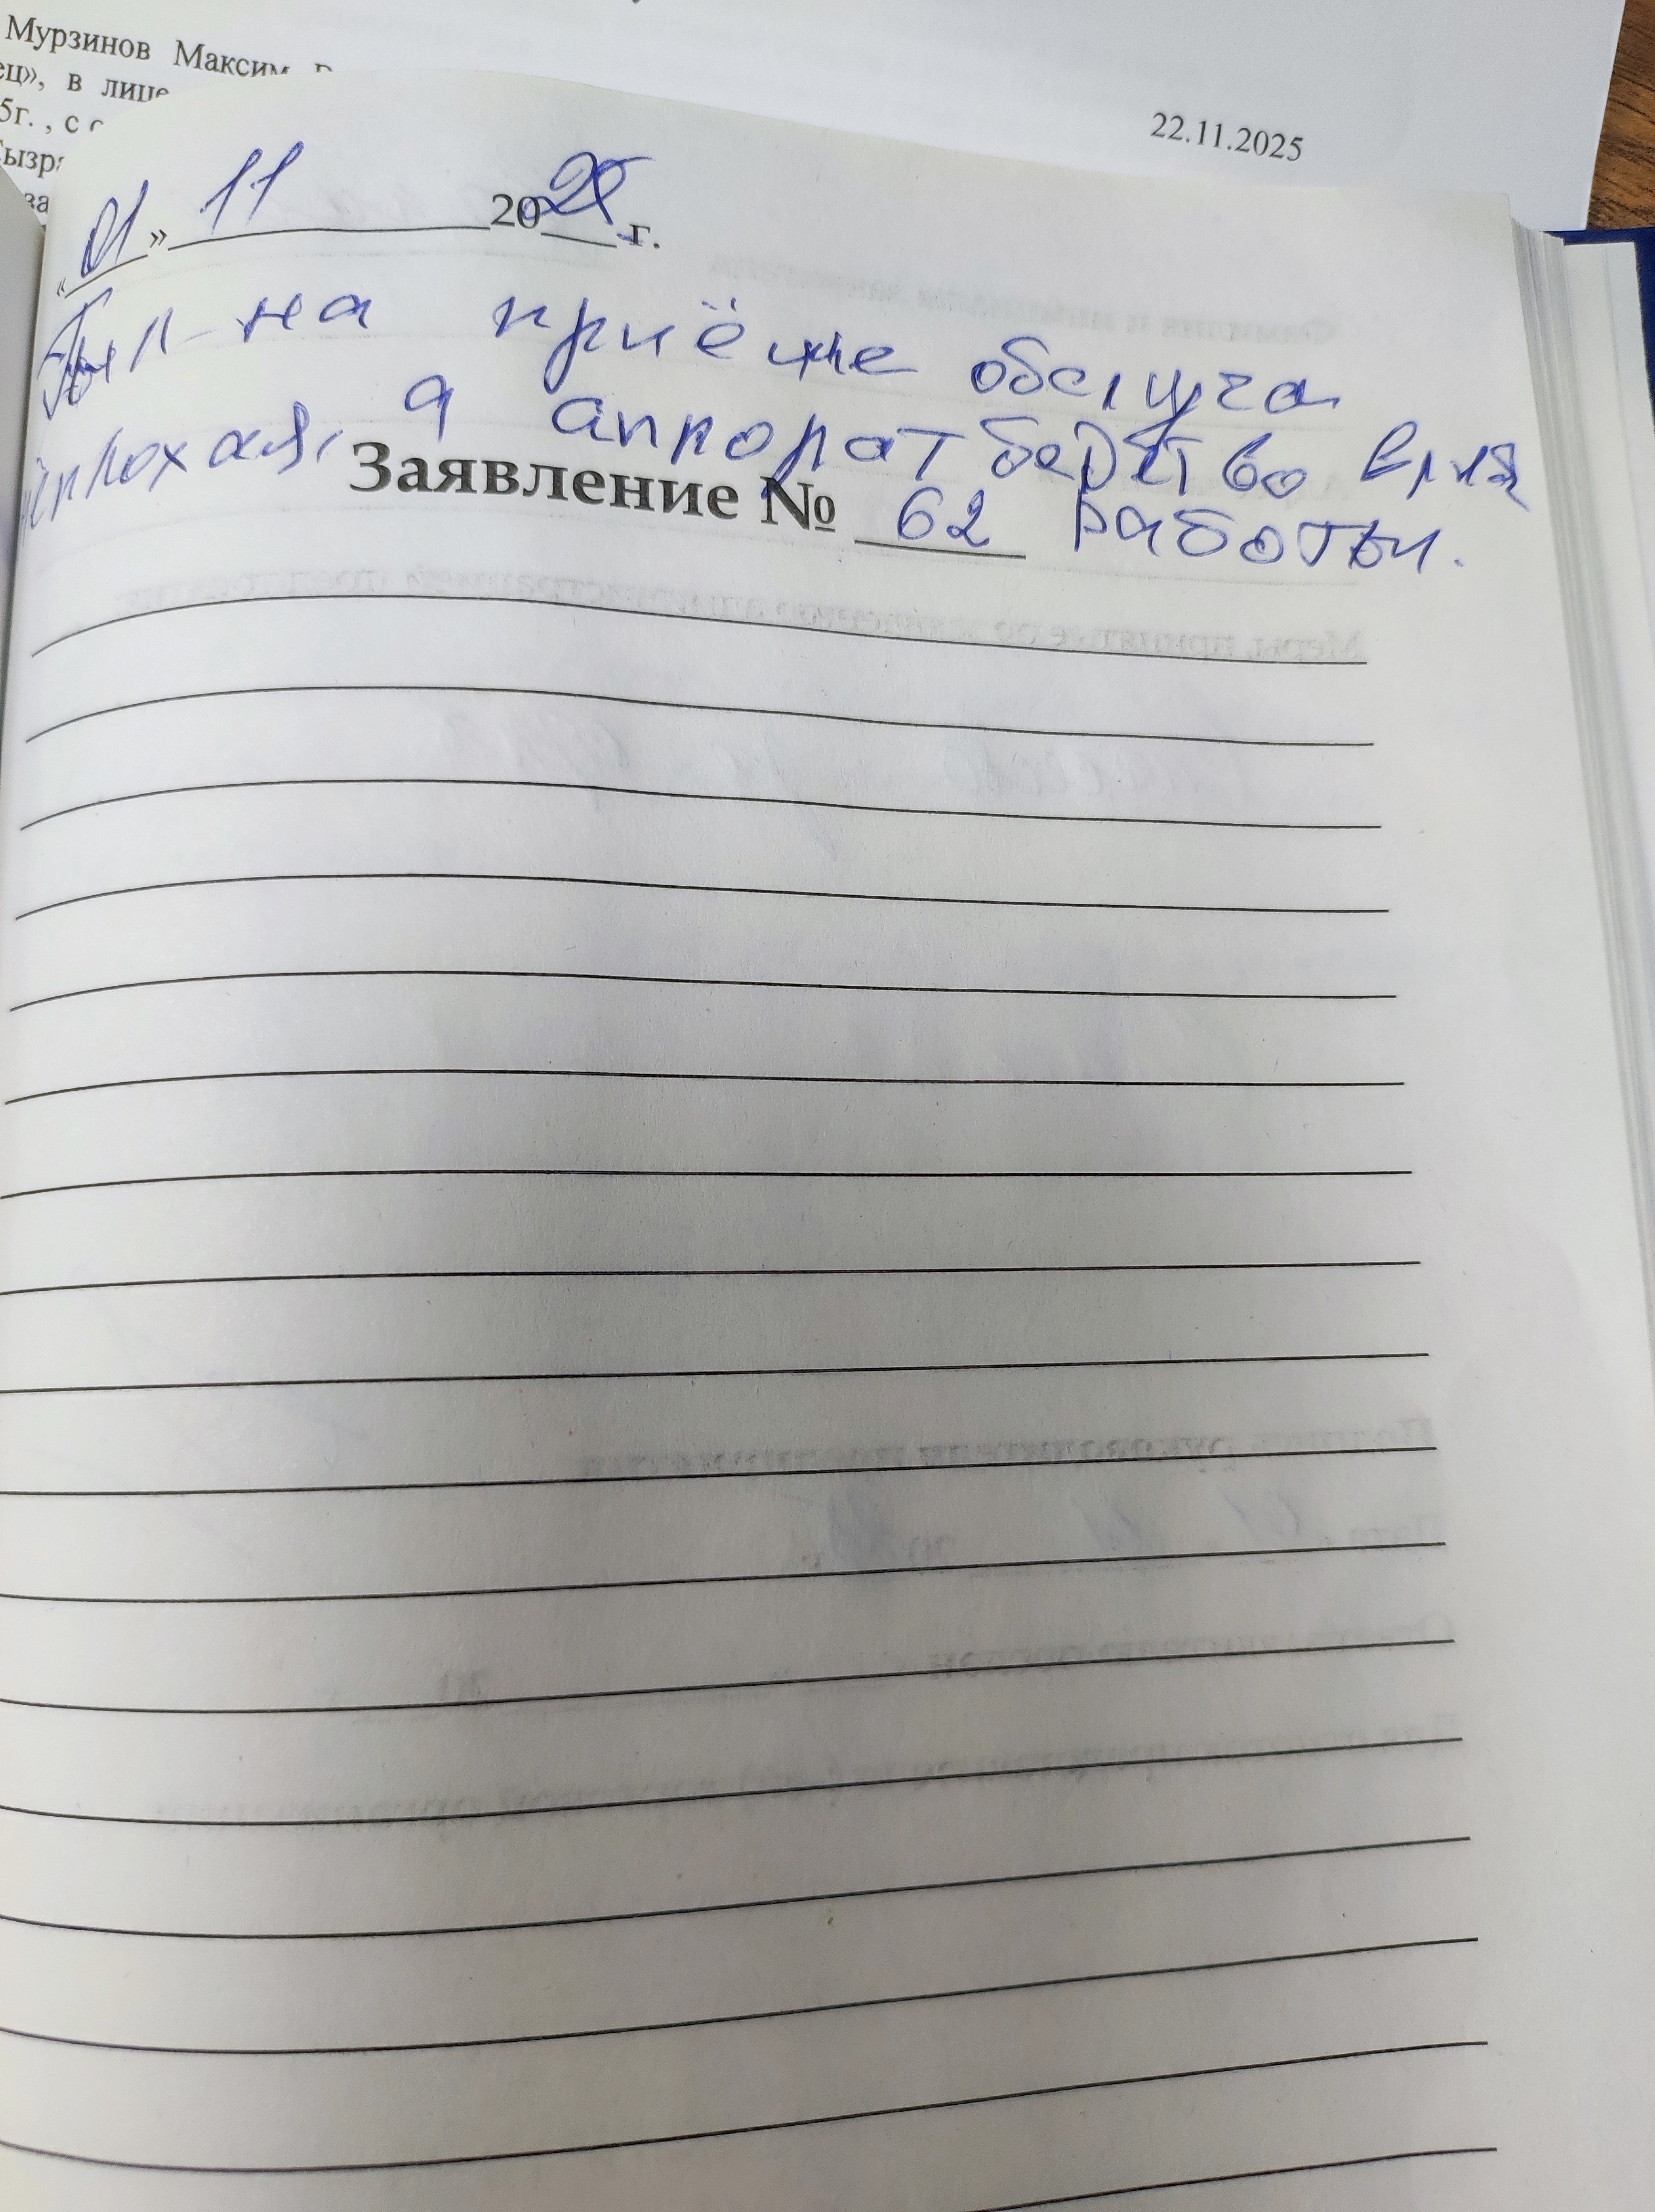 Мурзинов Максим
ец», в лице
5г. , с
Сызра
за
22.11.2025
«01» 11 2025 г.
Был на приёме обслуга
неплохая, а аппорат бедство время
Заявление № 62 работы.